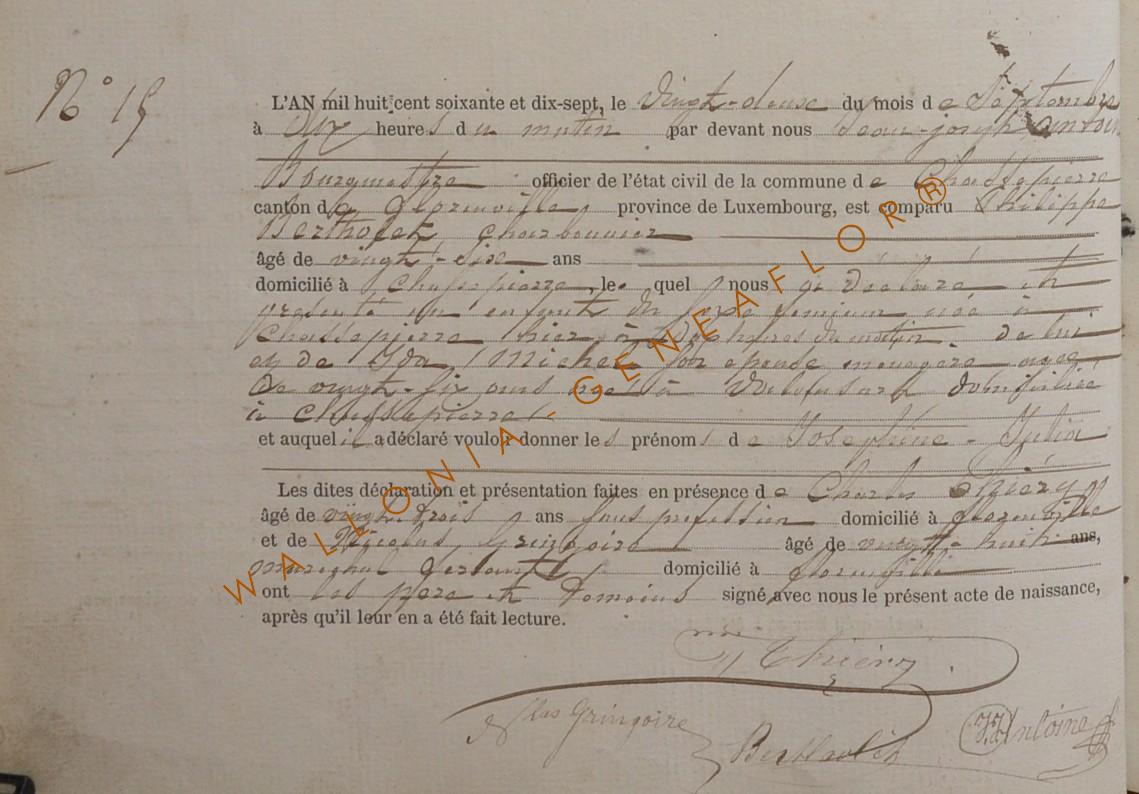 N° 15
L'AN mil huit cent soixante et dix-sept, le vingt-deuse du mois de Septembre
à dix heures du matin par devant nous Jean-joseph Antoine
Bourgmestre officier de l'état civil de la commune de Chassepierre
canton de florenville, province de Luxembourg, est comparu Philippe
Bertholet charbonnier
âgé de vingt-six ans
domicilié à Chassepierre, le quel nous a déclaré et
présenté un enfant du sexe feminin née à
Chassepierre hier à heures du matin de lui
et de Ida Michel son epouse menagère agée
de vingt-six ans née à domiciliée
à Chassepierre
et auquel il a déclaré vouloir donner les prénoms de Josephine - Julia
Les dites déclaration et présentation faites en présence de Charles Thiéry
âgé de vingt trois ans sans profession domicilié à florenville
et de Nicolas Gringoire âgé de vingt-huit ans,
marechal ferant domicilié à florenville
ont les pere et temoins signé avec nous le présent acte de naissance,
après qu'il leur en a été fait lecture.
Thiéry
Nlas Gringoire
Bertholet
JJ Antoine
WALLONIA-GENEAFLOR®